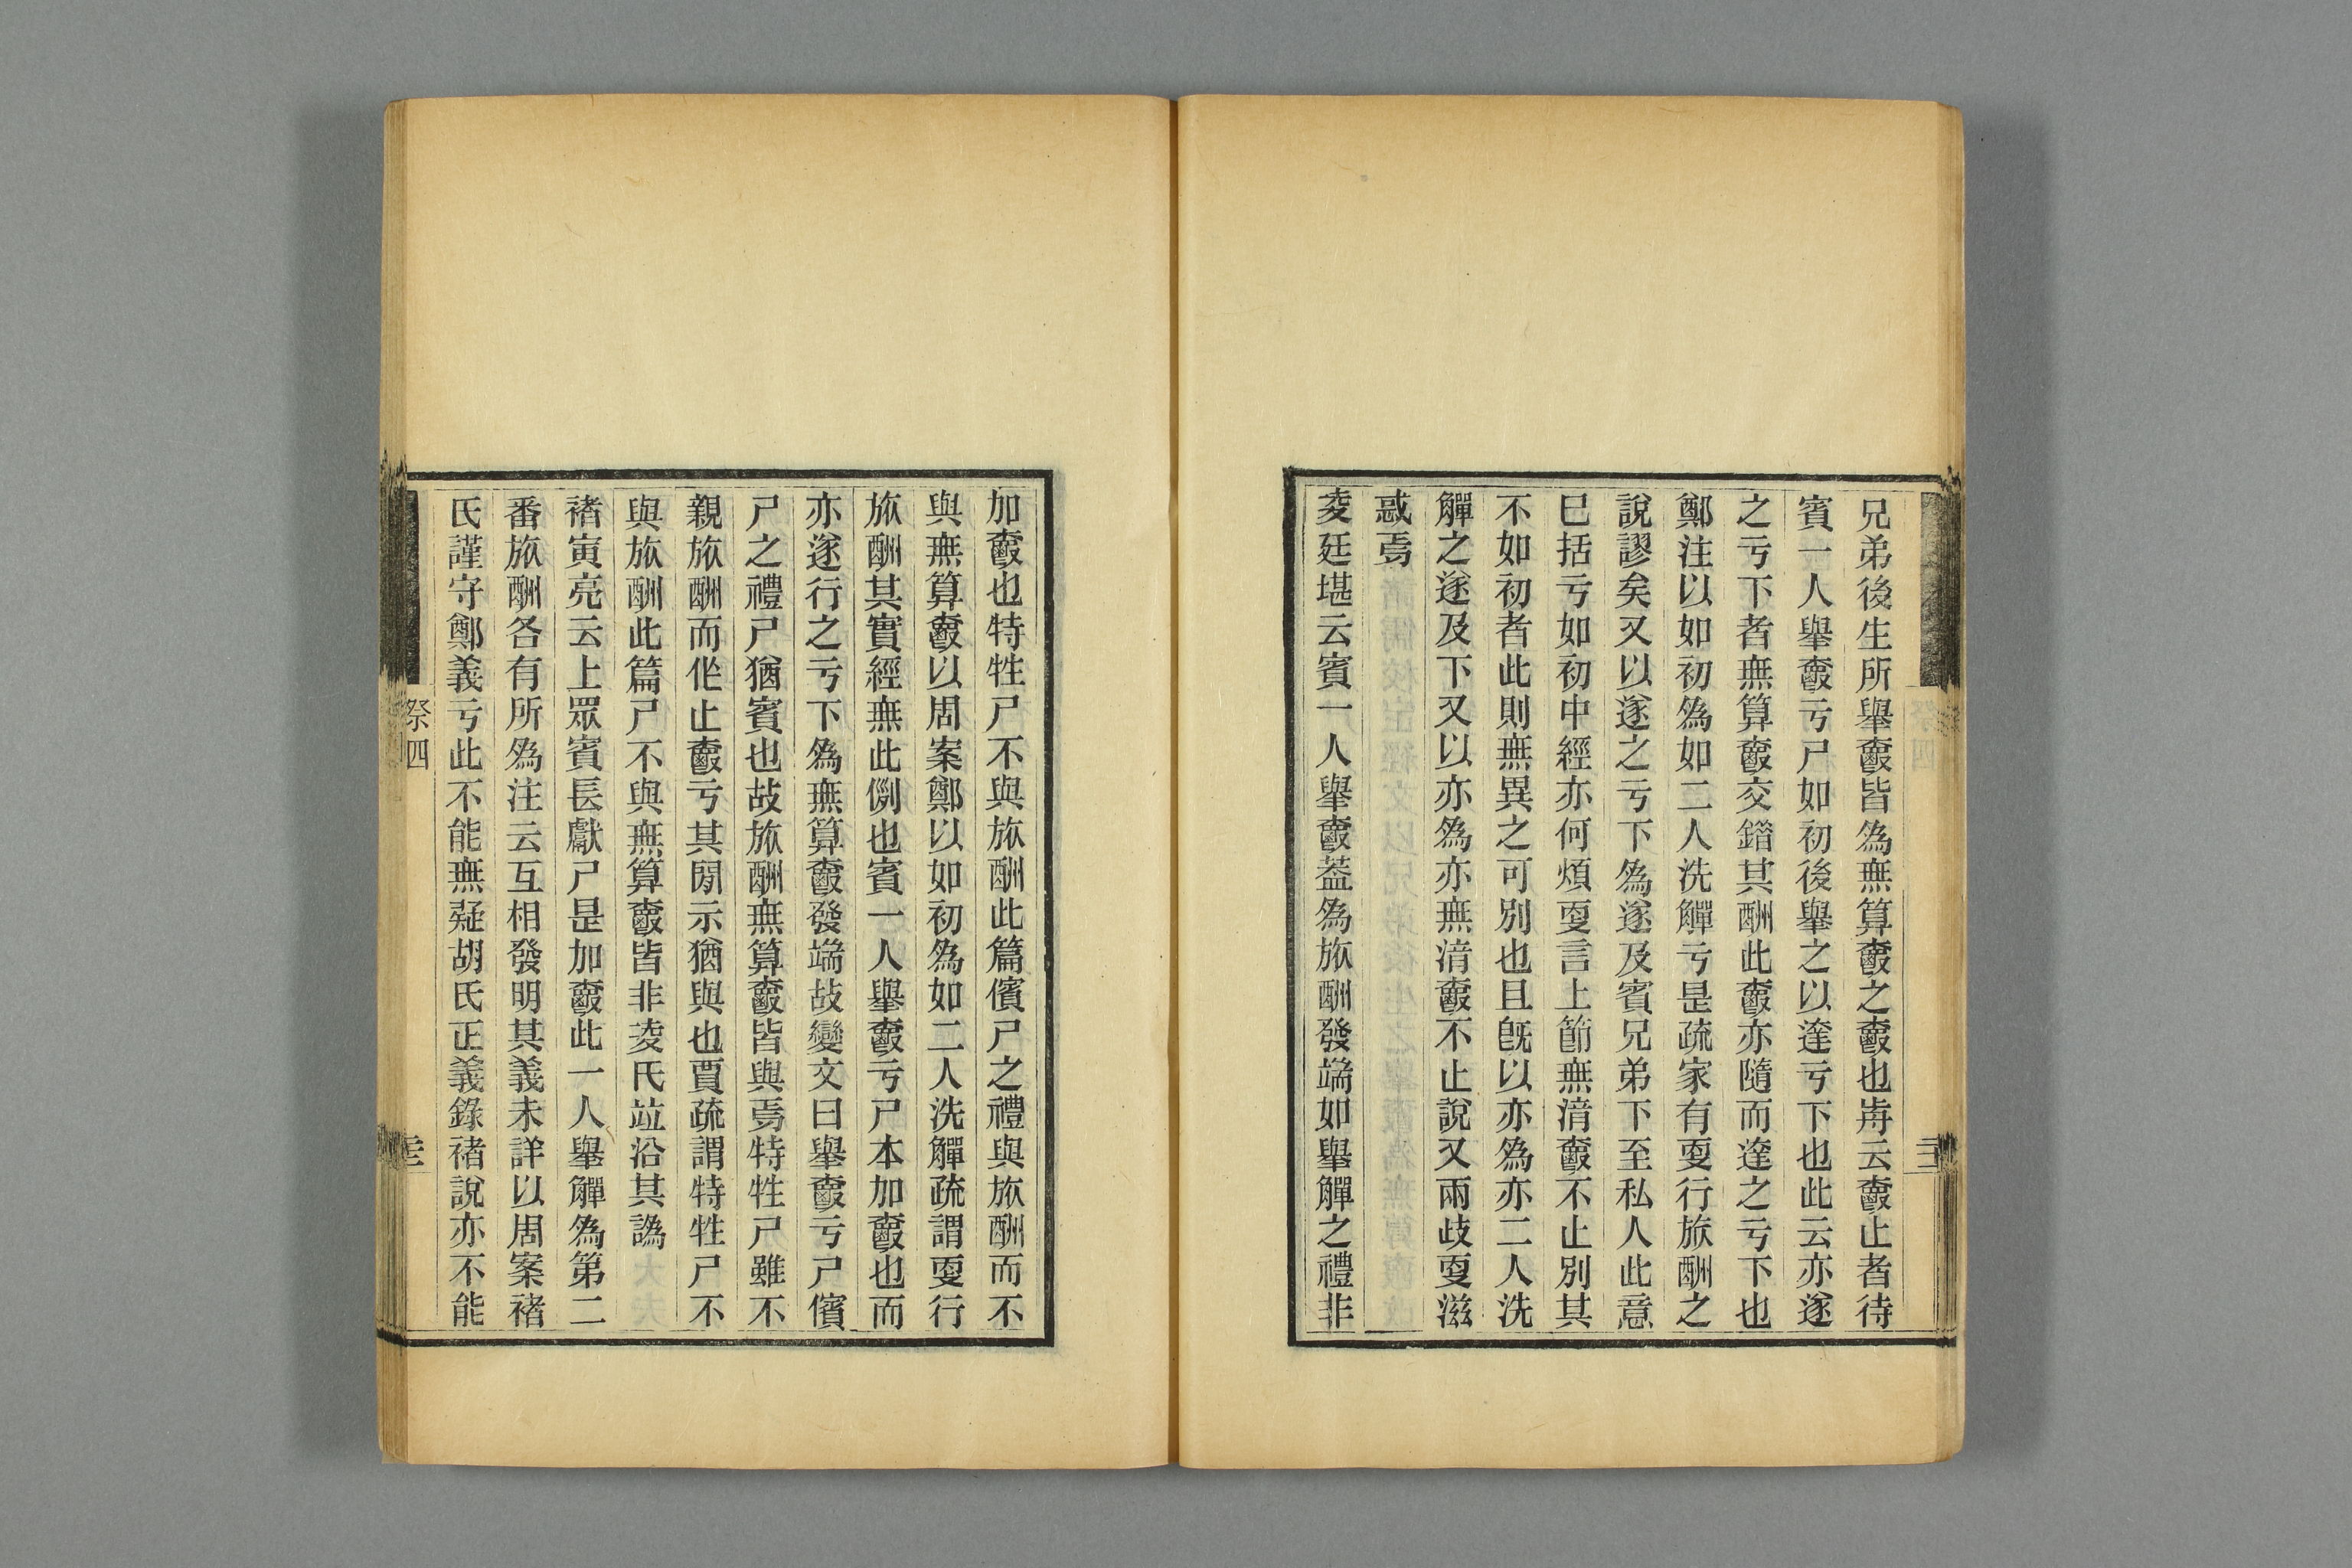 兄弟後生所舉爵皆為無算爵之爵也歬云爵止者待
賓一人舉爵亏尸如初後舉之以達亏下也此云亦遂
之亏下者無算爵交錯其酬此爵亦隨而達之亏下也
鄭注以如初為如二人洗觶亏昰疏家有㪅行旅酬之
說謬矣又以遂之亏下為遂及賓兄弟下至私人此意
已括亏如初中經亦何煩㪅言上節無湇爵不止別其
不如初者此則無異之可別也且旣以亦為亦二人洗
觶之遂及下又以亦為亦無湇爵不止說又兩歧㪅滋
惑焉
夌廷堪云賓一人舉爵蓋為旅酬發端如舉觶之禮非
加爵也特牲尸不與旅酬此篇儐尸之禮與旅酬而不
與無算爵以周案鄭以如初為如二人洗觶疏謂㪅行
旅酬其實經無此例也賓一人舉爵亏尸本加爵也而
亦遂行之亏下為無算爵發端故變文曰舉爵亏尸儐
尸之禮尸猶賓也故旅酬無算爵皆與焉特牲尸雖不
親旅酬而作止爵亏其閒示猶與也賈疏謂特牲尸不
與旅酬此篇尸不與無算爵皆非夌氏竝沿其譌
褚寅亮云上眾賓長獻尸昰加爵此一人舉觶為第二
番旅酬各有所為注云互相發明其義未詳以周案褚
氏謹守鄭義亏此不能無疑胡氏正義錄褚說亦不能
祭四